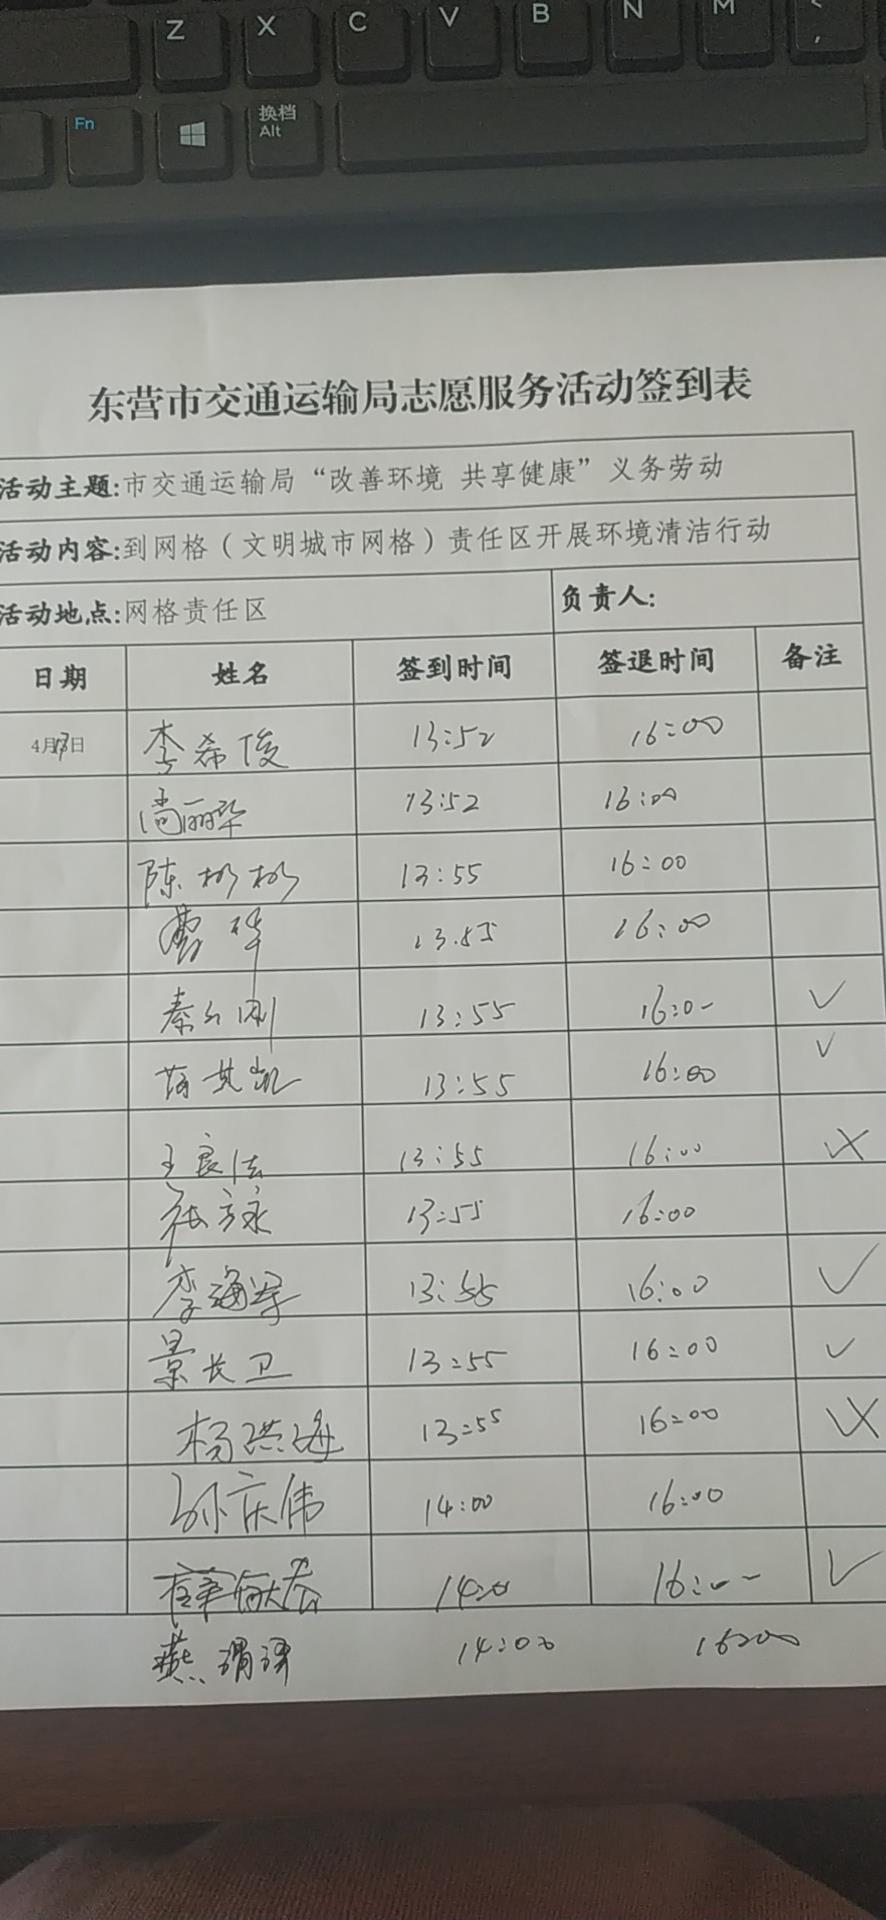 Z X C V B N M < ,
Fn 换档 Alt
东营市交通运输局志愿服务活动签到表
活动主题:市交通运输局“改善环境 共享健康”义务劳动
活动内容:到网格(文明城市网格)责任区开展环境清洁行动
活动地点:网格责任区 负责人:
日期 姓名 签到时间 签退时间 备注
4月13日 李希俊 13:52 16:00
尚丽华 13:52 16:00
陈彬彬 13:55 16:00
曹华 13.55 16:00
秦 刚 13:55 16:0- ✓
其凯 13:55 16:00 ✓
王良法 13:55 16:00
张 13:55 16:00
李海军 13:55 16:00 ✓
景长卫 13:55 16:00 ✓
杨洪海 13:55 16:00
孙庆伟 14:00 16:00
14:0 16:-- ✓
燕 14:00 16:00